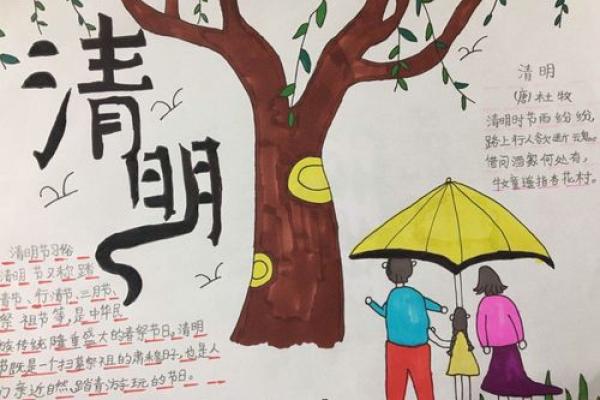 清明
清明
(唐)杜牧
清明时节雨纷纷,
路上行人欲断魂。
借问酒家何处有,
牧童遥指杏花村。
清明节习俗
清明节又称踏
青节、行清节、三月节、
祭祖节等,是中华民
族传统隆重盛大的春祭节日。清明
节既是一个扫墓祭祖的肃穆日子,也是人
们亲近自然、踏青游玩的节日。